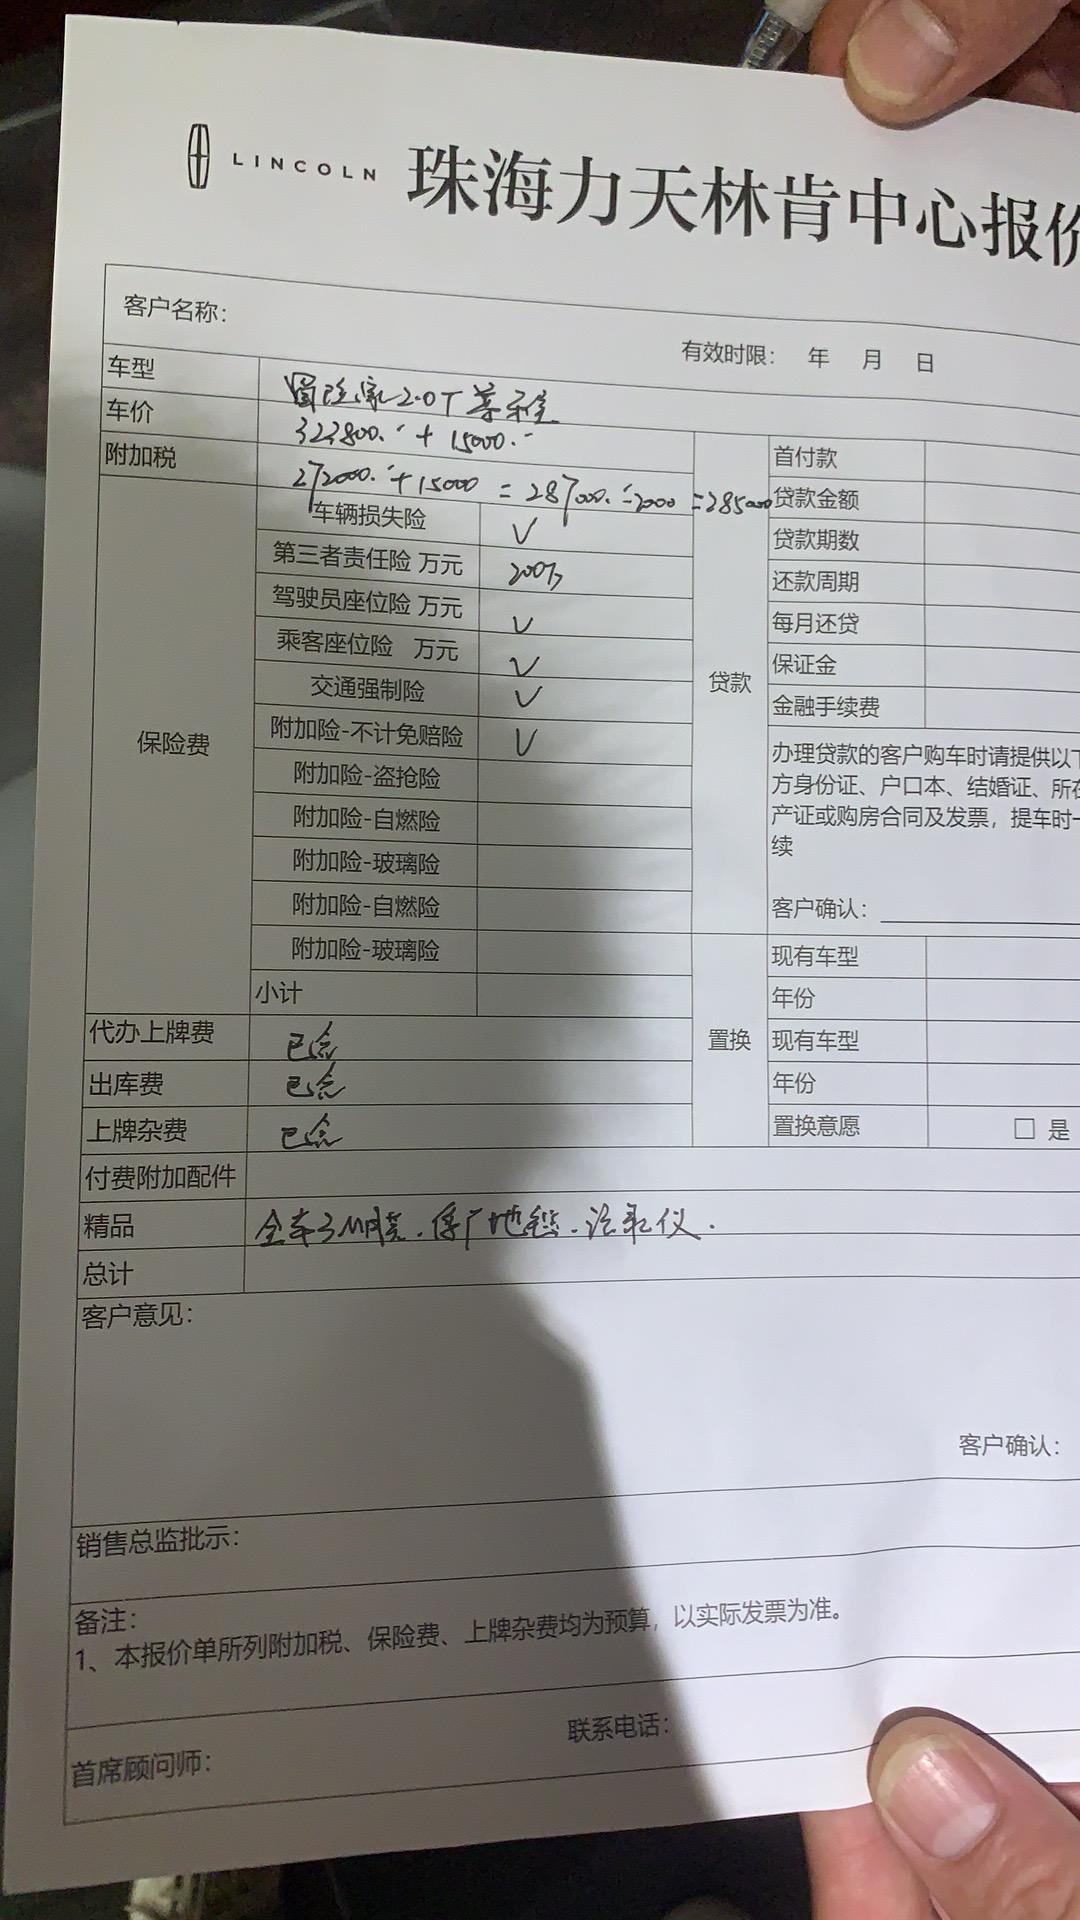 LINCOLN 珠海力天林肯中心报价
客户名称：
有效时限： 年 月 日
车型 冒险家2.0T尊享
车价 323800.- + 15000.-
附加税 272000.- + 15000 = 287000.-2000 = 285000
保险费
车辆损失险 √
第三者责任险 万元 200万
驾驶员座位险 万元 √
乘客座位险 万元 √
交通强制险 √
附加险-不计免赔险 √
附加险-盗抢险
附加险-自燃险
附加险-玻璃险
附加险-自燃险
附加险-玻璃险
小计
贷款
首付款
贷款金额
贷款期数
还款周期
每月还贷
保证金
金融手续费
办理贷款的客户购车时请提供以下
方身份证、户口本、结婚证、所在
产证或购房合同及发票，提车时一
续
客户确认：
置换
现有车型
年份
现有车型
年份
置换意愿 □ 是
代办上牌费 已含
出库费 已含
上牌杂费 已含
付费附加配件
精品 全车3M膜. 原厂地毯. 记录仪.
总计
客户意见：
客户确认：
销售总监批示：
备注：
1、本报价单所列附加税、保险费、上牌杂费均为预算，以实际发票为准。
联系电话：
首席顾问师：